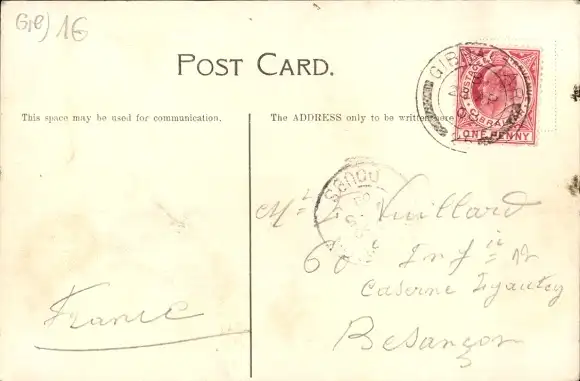 Gib) 16
POST CARD.
This space may be used for communication.
The ADDRESS only to be written here
GIB
POSTAGE
ONE PENNY
Mr L Vuillard
60e Inf ie
Caserne Lyautey
Besançon
France